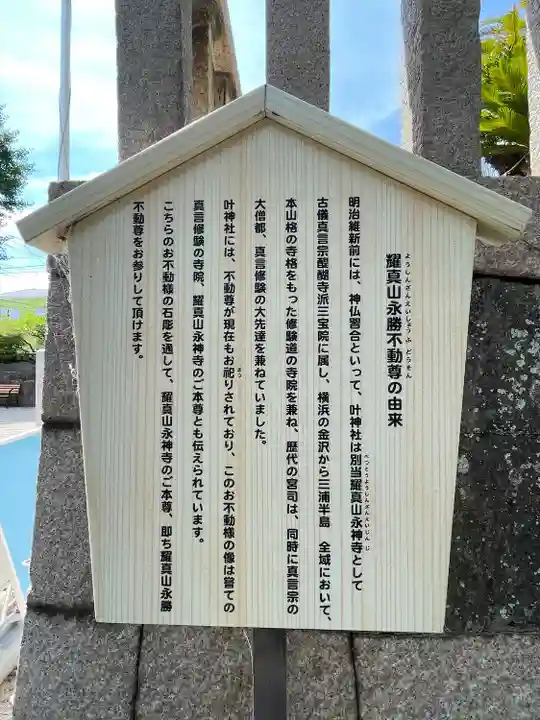 耀真山永勝不動尊の由来
ようしんざんえいしょうふどうそん
明治維新前には、神仏習合といって、叶神社は別当耀真山永神寺として
べっとうようしんざんえいじんじ
古儀真言宗醍醐寺派三宝院に属し、横浜の金沢から三浦半島 全域において、
本山格の寺格をもった修験道の寺院を兼ね、歴代の宮司は、同時に真言宗の
大僧都、真言修験の大先達を兼ねていました。
叶神社には、不動尊が現在もお祀りされており、このお不動様の像は嘗ての
まつ
真言修験の寺院、耀真山永神寺のご本尊とも伝えられています。
こちらのお不動様の石彫を通して、耀真山永神寺のご本尊、即ち耀真山永勝
不動尊をお参りして頂けます。